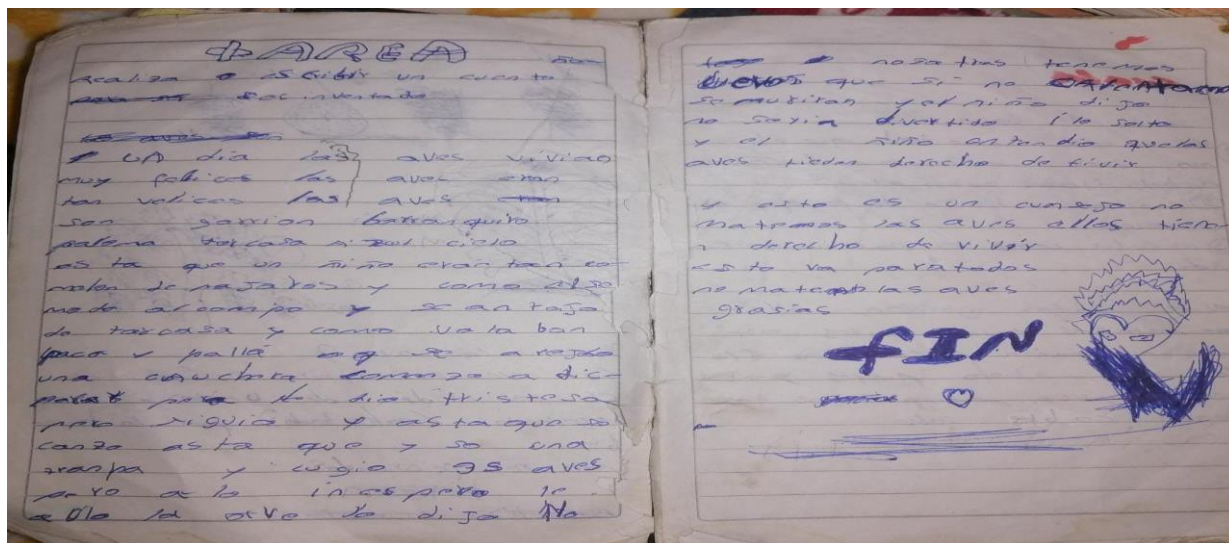 tAREA
Realiza o escribir un cuento
inventado
UN dia las aves vivian
muy felices las aves eran
tan velices las aves
son gorrion barranquiro
paloma torcasa azul cielo
asta que un niño
de pajaros y como el se
mudo al campo y se antojo
de torcasa y como vola ban
paca y pallá
una cauchera comenzo a dic-
parar pero le dio tristesa
pero siguio y asta que se
canzo asta que y so una
tranpa y cugio 95 aves
pero a lo inespero le
ablo la arve le dijo No
nosotras tenemos
uevos que si no
se muriran y el niño dijo
no seria divertido i lo solto
y el niño entendio que las
aves tieden derecho de vivir
y esto es un cunsejo no
matremos las aves ellas tiene
n derecho de vivir
esto va para todos
no maten las aves
grasias
fIN